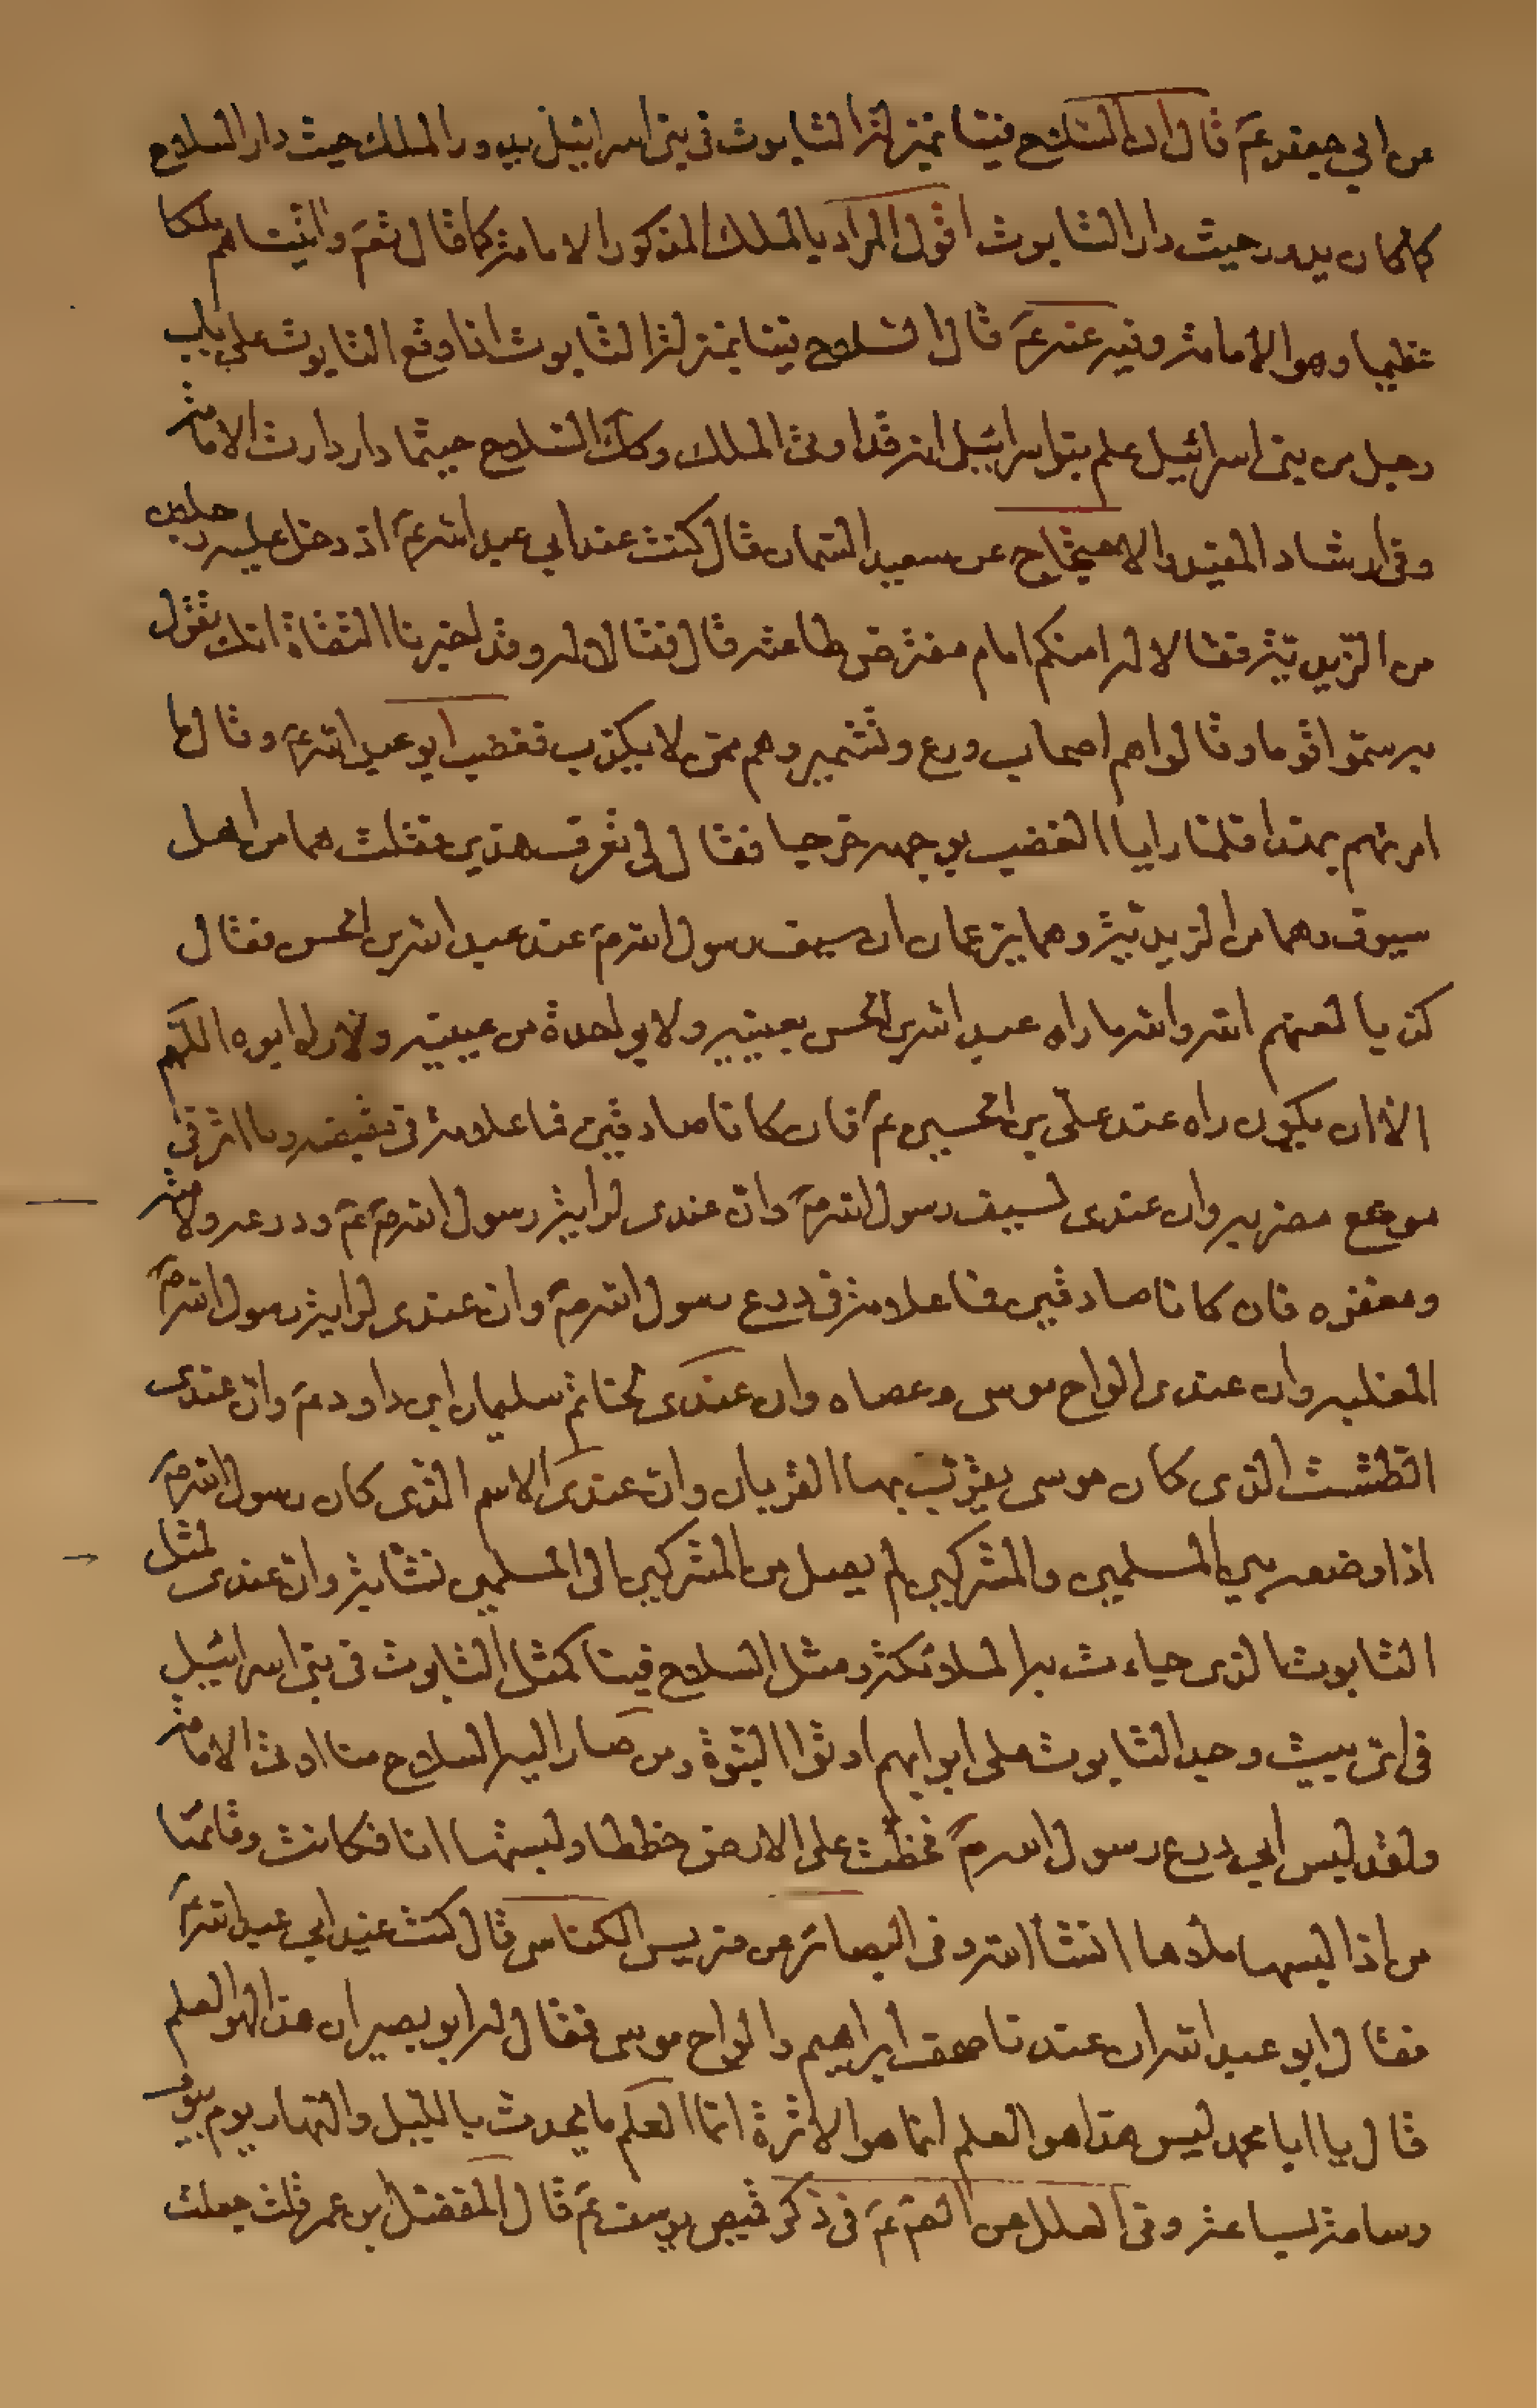 عن ابي جعفر عم قال ان السلاح فينا بمنزلة التابوت في بني اسرائيل يدور الملك حيث دار السلاح
كما كان يدور حيث دار التابوت اقول المراد بالملك المذكور الامامة كما قال تعم واتيناهم ملكا
عظيما وهو الامامة وفيه عنه عم قال السلاح فينا بمنزلة التابوت اذا وضع التابوت على باب
رجل من بني اسرائيل علم بنو اسرائيل انه قد اوتي الملك وكك السلاح حيثما دار دارت الامامة
وفي ارشاد المفيد والاحتجاج عن سعيد السمان قال كنت عند ابي عبد الله عم اذ دخل عليه رجلان
من الزيدية فقالا له امنكم امام مفترض طاعته قال فقال لا فقالا له وقد اخبرنا الثقاة انك تقول
به سموا قوما وقالوا هم اصحاب ورع وتشمير وهم ممن لا يكذب فغضب ابو عبد الله عم وقال ما
امرتهم بهذا فلما رايا الغضب بوجهه خرجا فقال لي تعرف هذين فقلت هما من اهل
سوق وهما من الزيدية وهما يزعمان ان سيف رسول الله صم عند عبد الله بن الحسن فقال
كذبا لعنهم الله والله ما راه عبد الله بن الحسن بعينيه ولا بواحدة من عينيه ولا راه ابوه اللهم
الا ان يكون راه عند علي بن الحسين عم فان كانا صادقين فما علامة في مقبضه وما اثر في
موضع مضربه وان عندي لسيف رسول الله صم وان عندي لراية رسول الله صم ودرعه ولامته
ومغفره فان كانا صادقين فما علامة في درع رسول الله صم وان عندي لراية رسول الله صم
المغلبه وان عندي الواح موسى وعصاه وان عندي لخاتم سليمان ابن داود عم وان عندي
الطشت الذي كان موسى يقرب بها القربان وان عندي الاسم الذي كان رسول الله صم
اذا وضعه بين المسلمين والمشركين لم يصل من المشركين الى المسلمين نشابة وان عندي لمثل
التابوت الذي جاءت به الملائكة ومثل السلاح فينا كمثل التابوت في بني اسرائيل
في اي بيت وجد التابوت على ابوابهم اوتوا النبوة ومن صار اليه السلاح منا اوتي الامامة
ولقد لبس ابي درع رسول الله صم فخطت على الارض خططا ولبستها انا فكانت وقائمنا
من اذا لبسها ملاها انشا الله وفي البصائر عن ضريس الكناسي قال كنت عند ابي عبد الله عم
فقال ابو عبد الله ان عندنا صحف ابراهيم والواح موسى فقال له ابو بصير ان هذا لهو العلم
قال يا ابا محمد ليس هذا هو العلم انما هو الاثرة انما العلم ما يحدث بالليل والنهار يوم بيوم
وساعة بساعة وفي العلل عن الصم عم في ذكر قميص يوسف عم قال المفضل بن عمر قلت جعلت